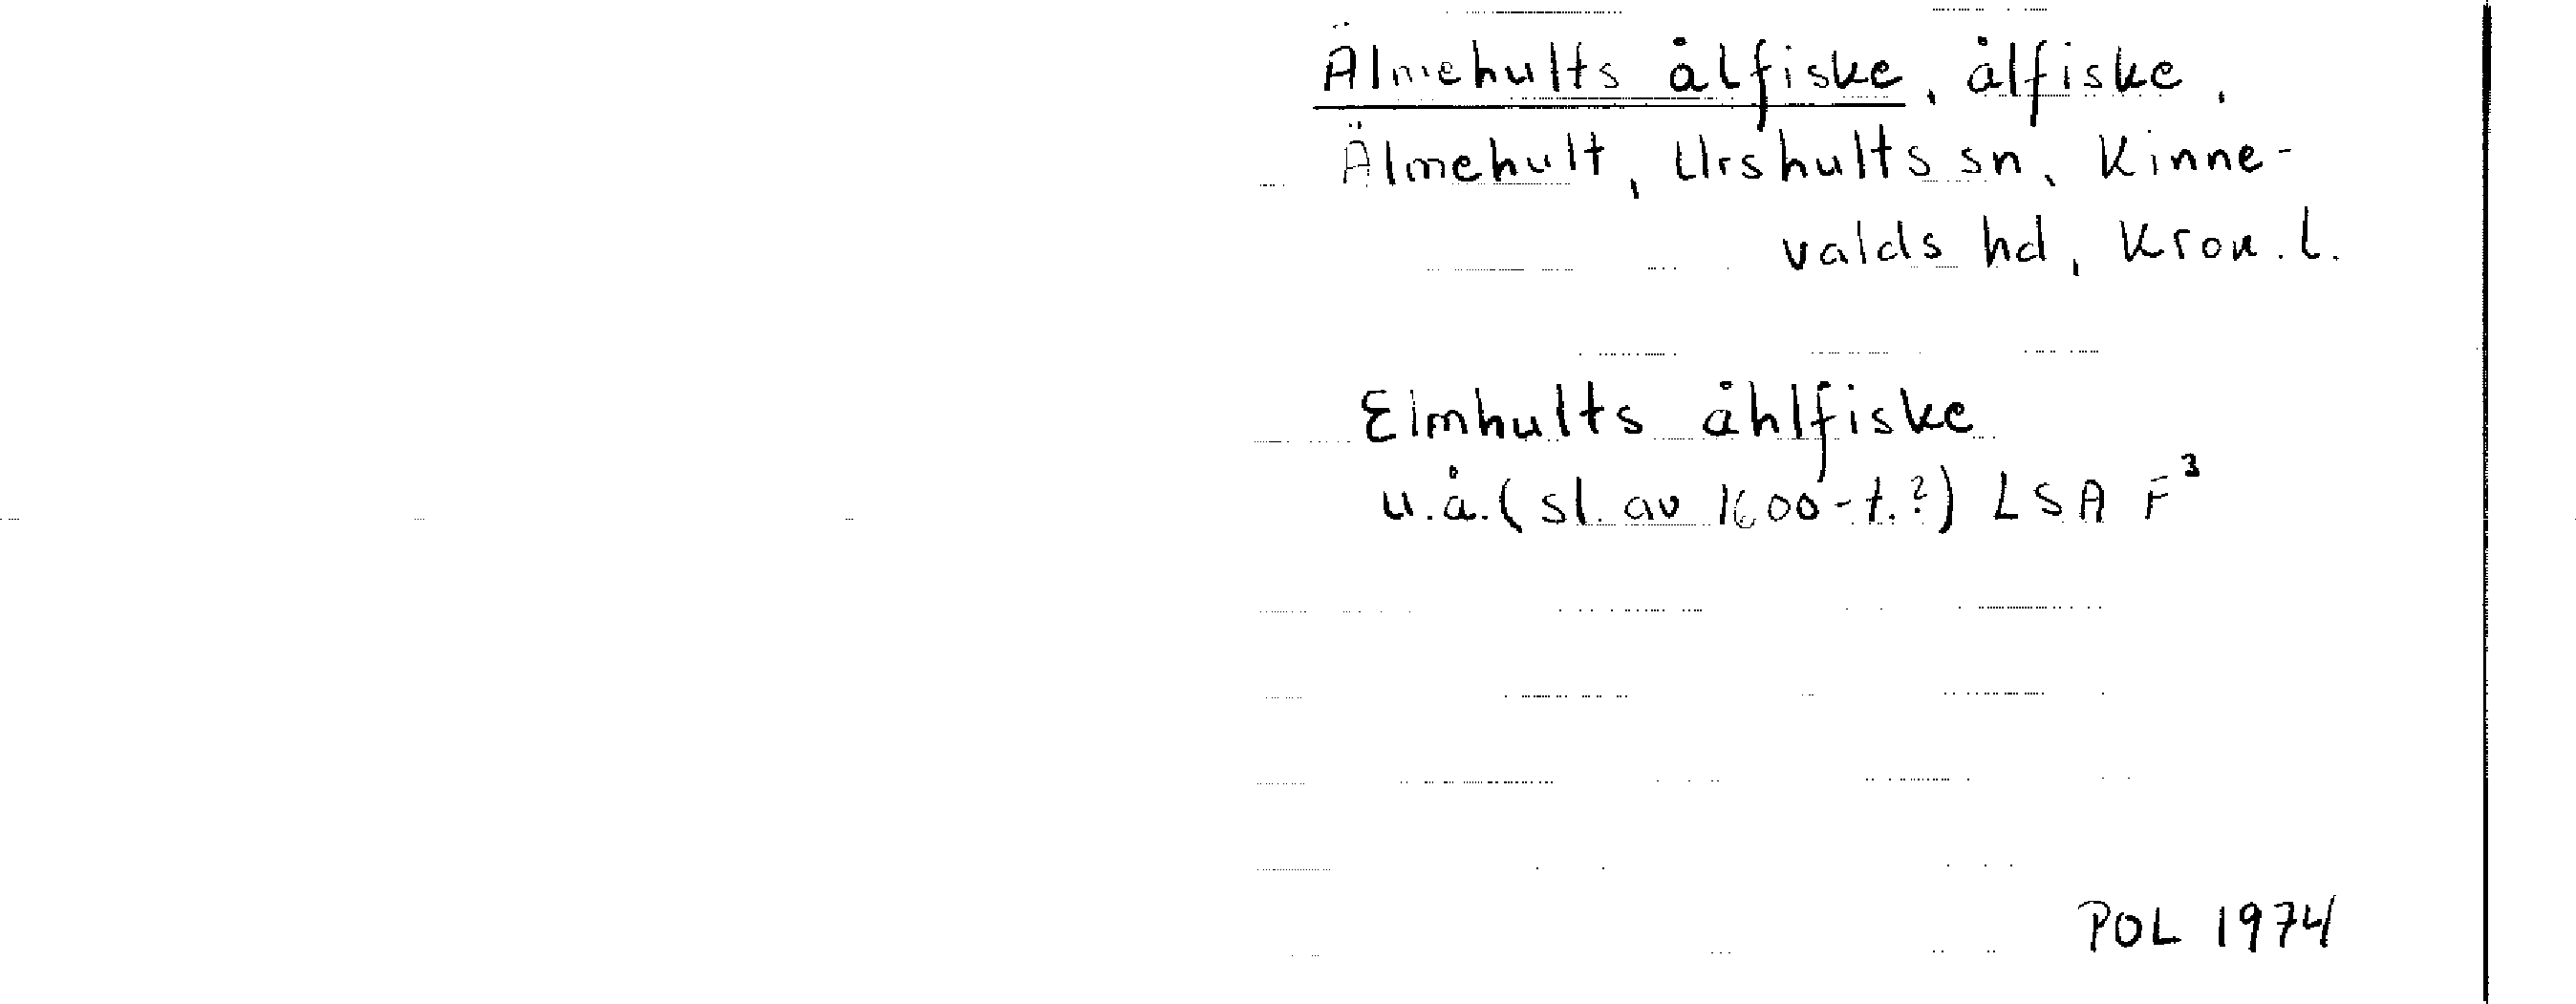 Älmehults ålfiske, ålfiske,
Älmehult, Urshults sn, Kinne-
valds hd, Kron. l.
Elmhults åhlfiske
u.å. (sl. av 1600-t.?) LSA F³
POL 1974